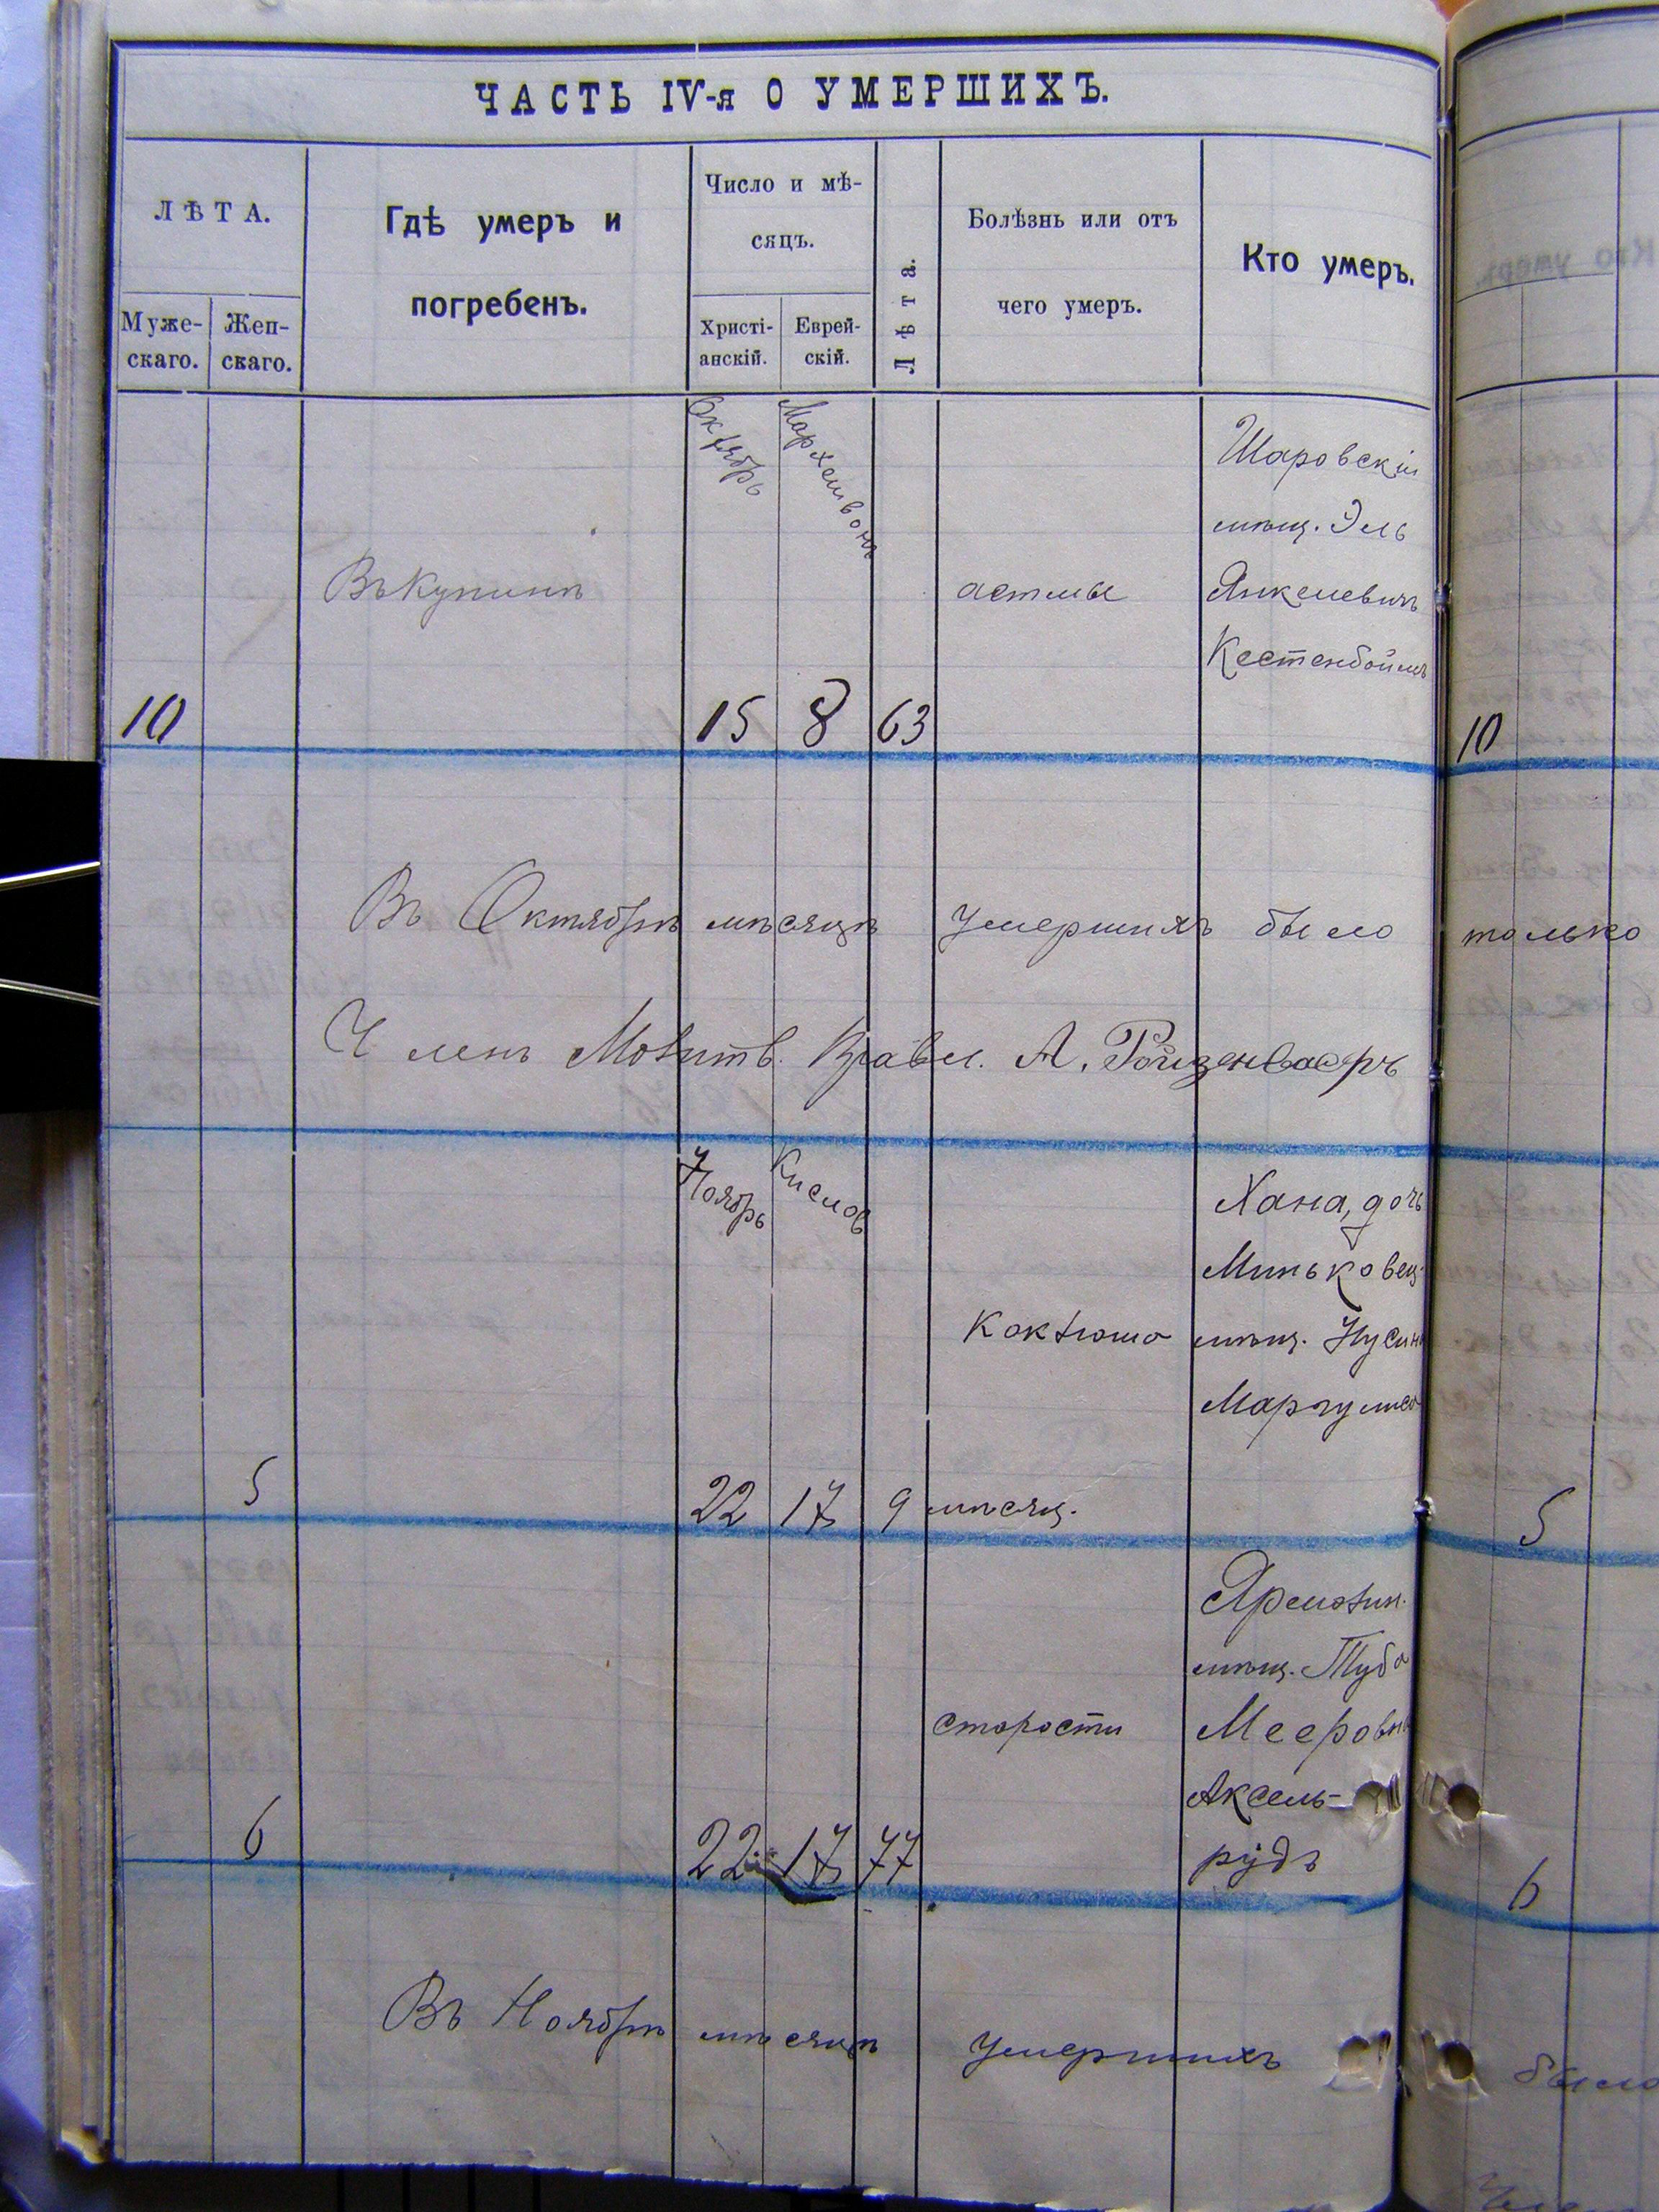 ЧАСТЬ IV-я О УМЕРШИХЪ.
ЛѢТА.
Муже-
скаго.
Жен-
скаго.
Гдѣ умеръ и
погребенъ.
Число и мѣ-
сяцъ.
Христі-
анскій.
Еврей-
скій.
Лѣта.
Болѣзнь или отъ
чего умеръ.
Кто умеръ.
Октябрь
Мархешвонъ
Шаровскій
мѣщ. Эль
Въ Купинѣ
астмы
Янкелевичъ
Кестенбоймъ
10
15 8 63
10
Въ Октябрѣ мѣсяцѣ умершихъ было только
Членъ Молитв. Правл. А. Ройзенвасеръ
Ноябрь
Кислов
Хана, дочь
Миньковец.
коклюша
мѣщ. Нусин
Маргулиса
5
22 17 9 мѣсяц.
5
Ярмолин.
мѣщ. Туба
старости
Мееровна
Аксель-
рудъ
6
22 17 77
6
Въ Ноябрѣ мѣсяцѣ умершихъ было